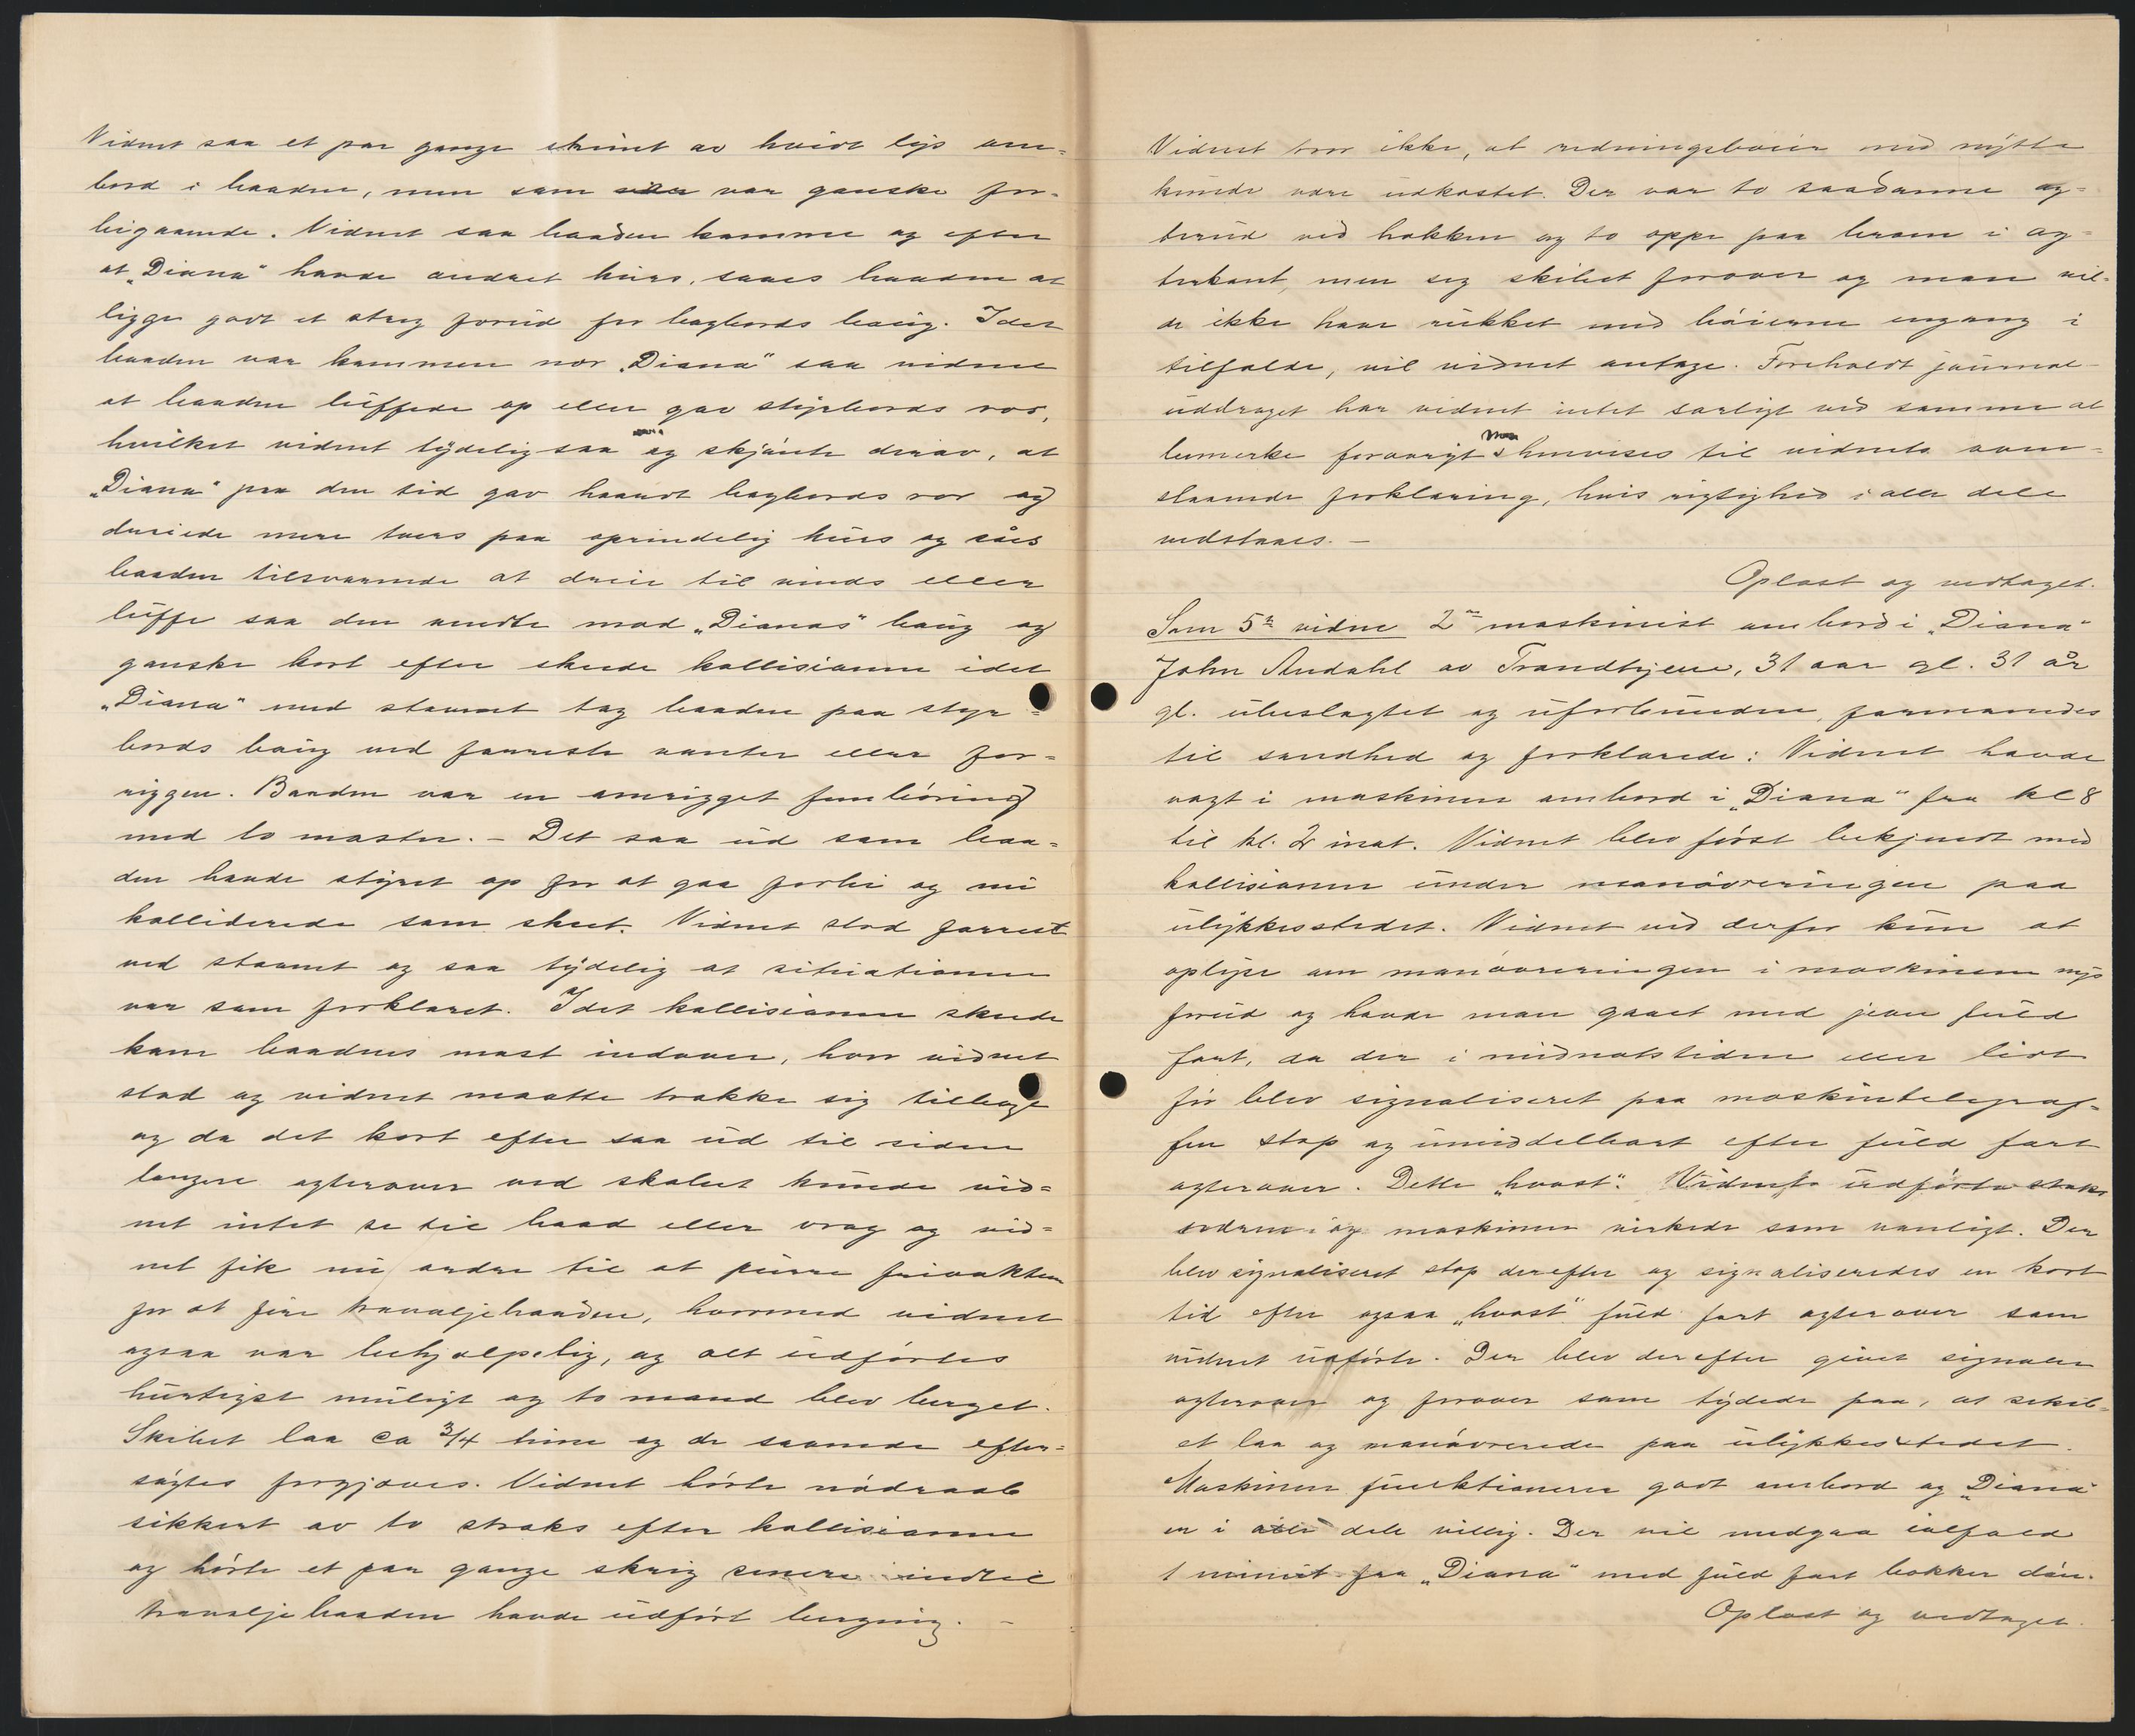 Vidnet saa et par gange skimt av hvidt lys om-
bord i baaden, men som var ganske for-
bigaaende. Vidnet saa baaden komme og efter
at „Diana" havde andret kurs, saaes baaden at
ligge godt et streg forud for bagbords baug. Idet
baaden var kommen nær „Diana" saa vidnet
at baaden luffede op eller gav styrbords ror,
hvilket vidnet tydelig saa og skjønte derav, at
„Diana" paa den tid gav haardt bagbords ror og
dreiede mere tvers paa oprindelig kurs og såes
baaden tilsvarende at dreie til vinds eller
luffe saa den vendte mod „Dianas" baug og
ganske kort efter skede kollisionen idet
„Diana" med stavnet tog baaden paa styr-
bords baug ved forreste vanter eller for-
riggen. Baaden var en omrigget fembøring
med to master. – Det saa ud som baa-
den havde styret op for at gaa forbi og nu
kolliderede som skeet. Vidnet stod forrest
ved stavnet og saa tydelig at situationen
var som forklaret. Idet kollisionen skede
kom baadens mast indover, hvor vidnet
stod og vidnet maatte trække sig tilbage
og da det kort efter saa ud til siden
længere agterover ved skolset kunde vid-
net intet se til baad eller vrag og vid-
net fik nu ordre til at purre frivakten
for at fire travaljebaaden, hvormed vidnet
ogsaa var behjælpelig, og alt udførtes
hurtigst muligt og to mand blev berget.
Skibet laa ca 3/4 time og de savnede efter-
søgtes forgjæves. Vidnet hørte nødraab
sikkert av to straks efter kollisionen
og hørte et par gange skrig senere indtil
travaljebaaden havde udført bergning. –
Vidnet tror ikke, at redningsbøier med nytte
kunde være udkastet. Der var to saadanne ag-
terud ved hakken og to oppe paa broen i ag-
terkant, men seg skibet forover og man vil-
de ikke have rukket med bøierne engang i
tilfælde, vil vidnet antage. Foreholdt journal-
uddraget har vidnet intet særligt ved samme at
bemerke forøvrigt henvises til vidnets oven-
staaende forklaring, hvis rigtighed i alle dele
vedstaaes. –
Oplæst og vedtaget.
Som 5te vidne 2en maskinist ombord i „Diana"
John Andahl av Trondhjem, 31 aar gl. 31 år
gl. ubeslægtet og uforbunden, formanedes
til sandhed og forklarede: Vidnet havde
vagt i maskinen ombord i „Diana" fra kl 8
til kl. 2 inat. Vidnet blev først bekjendt med
kollisionen under manøvreringen paa
ulykkesstedet. Vidnet ved derfor kun at
oplyse om manøvreringen i maskinen nys
forud og havde man gaaet med jevn fuld
fart, da der i midnatstiden eller lidt
før blev signaliseret paa maskintelegraf-
fen stop og umiddelbart efter fuld fart
agterover. Dette „hvast". Vidnet udførte straks
ordren og maskinen virkede som vanligt. Der
blev signaliseret stop derefter og signaliseredes en kort
tid efter ogsaa „hvast" fuld fart agterover som
vidnet udførte. Der blev derefter givet signaler
agterover og forover som tydede paa, at skib-
et laa og manøvrerede paa ulykkesstedet.
Maskinen funktionerer godt ombord og „Diana"
er i alle dele villig. Der vil medgaa ialfald
1 minut fra „Diana" med fuld fart bakker død.
Oplæst og vedtaget.